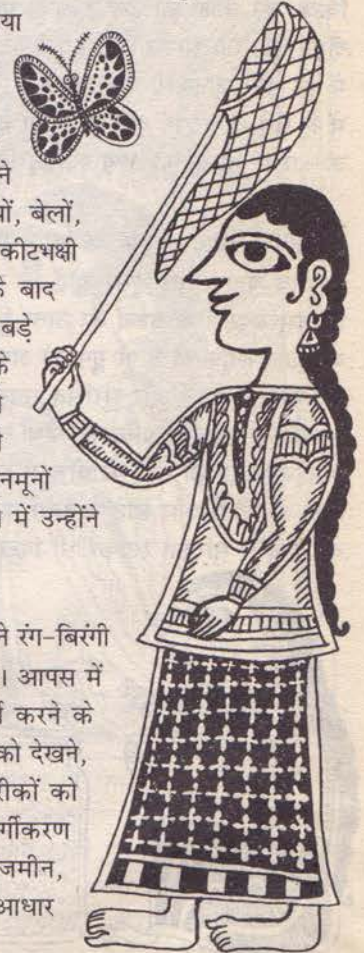 या
ने
यों, बेलों,
कीटभक्षी
बाद
बड़े
के
नमूनों
में उन्होंने
ने रंग-बिरंगी
। आपस में
करने के
को देखने,
रीकों को
र्गीकरण
जमीन,
आधार